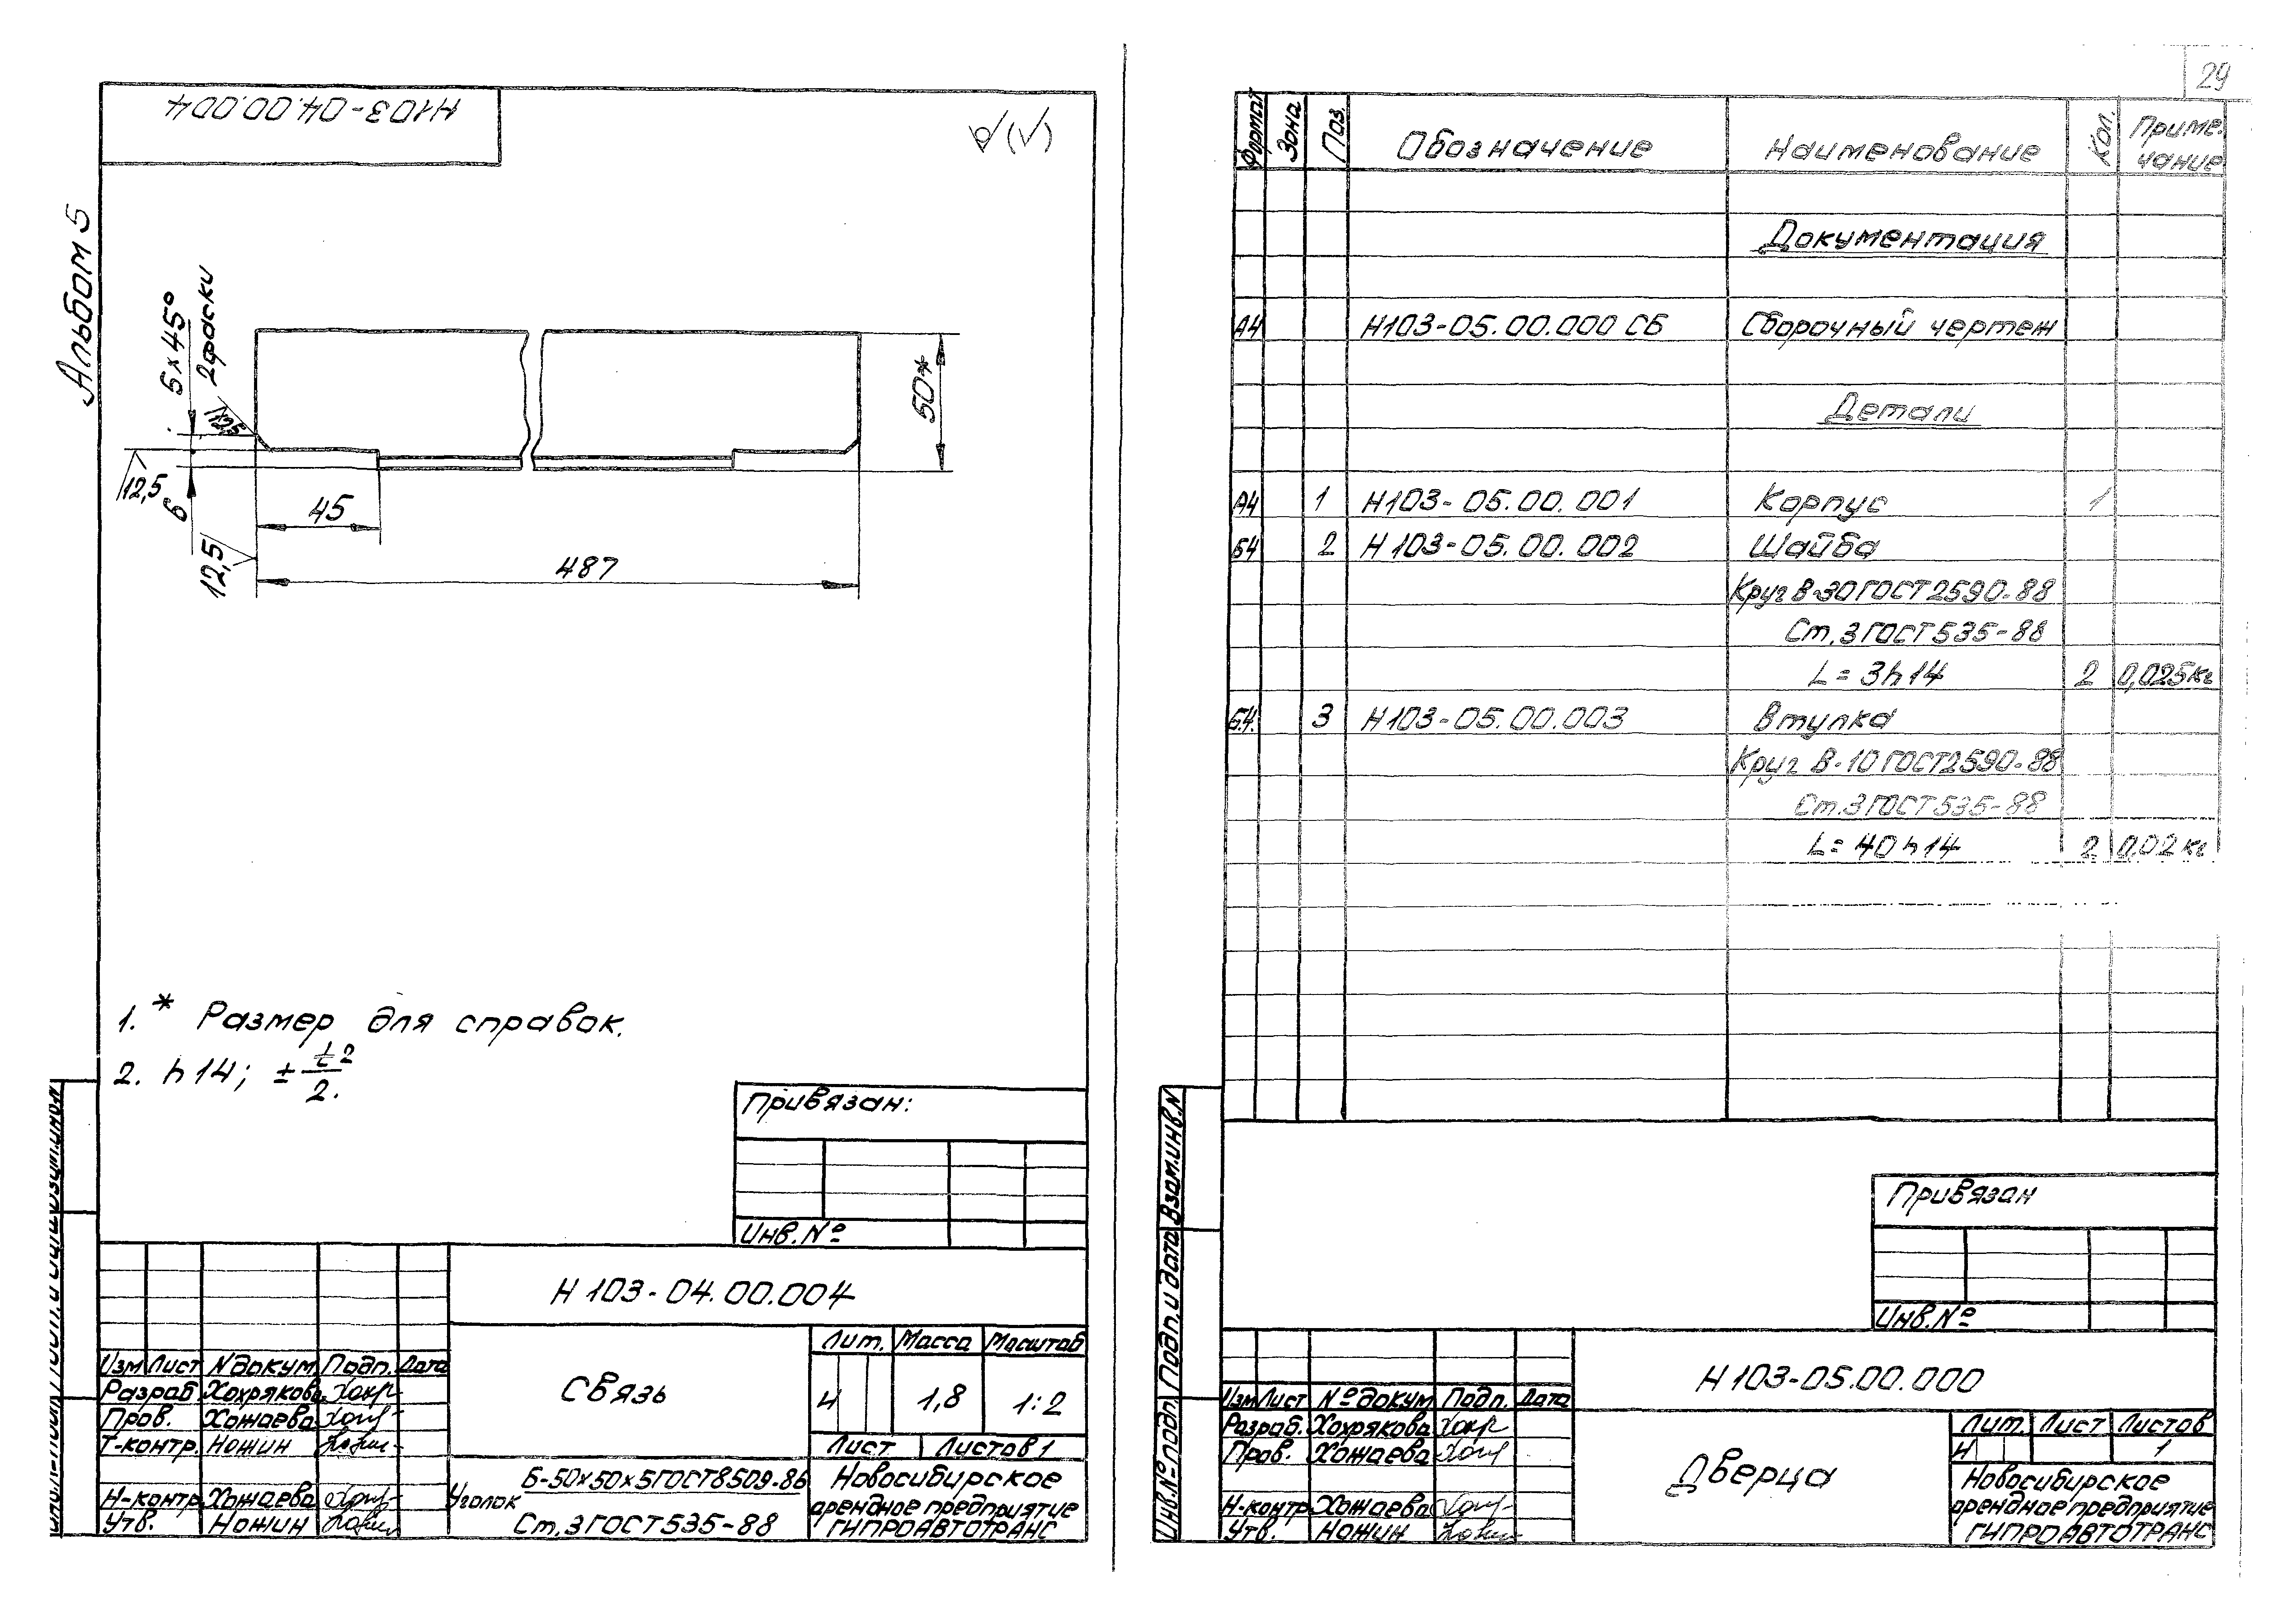 Н103-04.00.004
√(√)
Альбом 5
5×45°
2 фаски
12,5
12,5
6
12,5
45
487
50*
1.* Размер для справок.
2. h14; ± t2
2.
Привязан:
Инв.№
Н 103-04.00.004
Изм Лист №докум Подп. Дата
Разраб Хохрякова
Пров. Хожаева
Т-контр. Ножин
Н-контр Хожаева
Утв. Ножин
Связь
Лит. Масса Масштаб
И 1,8 1:2
Лист Листов 1
Уголок Б-50×50×5 ГОСТ 8509-86
Ст.3 ГОСТ 535-88
Новосибирское
арендное предприятие
ГИПРОАВТОТРАНС
29
Формат Зона Поз. Обозначение Наименование Кол. Приме-
чание
Документация
А4 Н103-05.00.000 СБ Сборочный чертеж
Детали
А4 1 Н103-05.00.001 Корпус 1
Б4 2 Н 103-05.00.002 Шайба
Круг В-30 ГОСТ 2590-88
Ст.3 ГОСТ 535-88
L = 3h14 2 0,025кг
Б4. 3 Н103-05.00.003 Втулка
Круг В-10 ГОСТ 2590-88
Ст.3 ГОСТ 535-88
L = 40h14 2 0,02 кг
Взам.инв.N
Подп. и дата
Инв.№ подл.
Привязан
Инв.№
Н 103-05.00.000
Изм Лист №докум Подп. Дата
Разраб. Хохрякова
Пров. Хожаева
Н-контр Хожаева
Утв. Ножин
Дверца
Лит. Лист Листов
И 1
Новосибирское
арендное предприятие
ГИПРОАВТОТРАНС